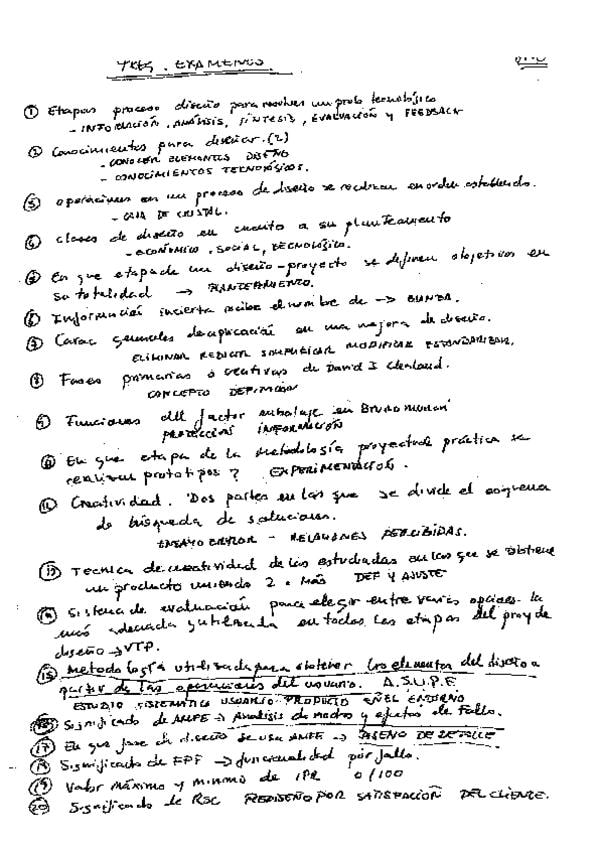 TRES. EXAMENES.
① Etapas proceso diseño para resolver un prob tecnológico
- INFORMACIÓN, ANÁLISIS, SÍNTESIS, EVALUACIÓN Y FEEDBACK
② Conocimientos para diseñar. (2)
- CONOCER ELEMENTOS DISEÑO
- CONOCIMIENTOS TECNOLÓGICOS.
operaciones en un proceso de diseño se realizan en orden establecido.
- CAJA DE CRISTAL.
clases de diseño en cuanto a su planteamiento
- ECONÓMICO, SOCIAL, TECNOLÓGICO.
En que etapa de un diseño-proyecto se definen objetivos en
su totalidad → PLANTEAMIENTO.
Información incierta recibe el nombre de →
Carac generales de aplicación en una mejora de diseño.
ELIMINAR REDUCIR SIMPLIFICAR MODIFICAR ESTANDARIZAR.
Fases primarias o creativas de David I Cleland.
CONCEPTO DEFINICIÓN
⑨ Funciones del factor embalaje en Bruno Munari
PROTECCIÓN INFORMACIÓN
⑩ En que etapa de la metodología proyectual práctica se
realizan prototipos? EXPERIMENTACIÓN.
⑪ Creatividad. Dos partes en las que se divide el esquema
de búsqueda de soluciones.
ENSAYO ERROR - RELACIONES PERCIBIDAS.
Tecnica de creatividad de las estudiadas en las que se obtiene
un producto uniendo 2 o más DEF Y AJUSTE
Sistema de evaluación para elegir entre varias opciones la
más adecuada y utilizada en todas las etapas del proy de
diseño → VTP.
⑮ Metodología utilizada para obtener los elementos del diseño a
partir de las operaciones del usuario. A.S.U.P.E
ESTUDIO SISTEMATICO USUARIO PRODUCTO EN EL ENTORNO
Significado de AMFE → Análisis de modos y efectos de Fallo.
⑰ En que fase de diseño se usa AMFE → DISEÑO DE DETALLE
Significado de FPF → funcionalidad por fallo.
⑲ Valor máximo y mínimo de IPR 0/100
⑳ Significado de RSC REDISEÑO POR SATISFACIÓN DEL CLIENTE.